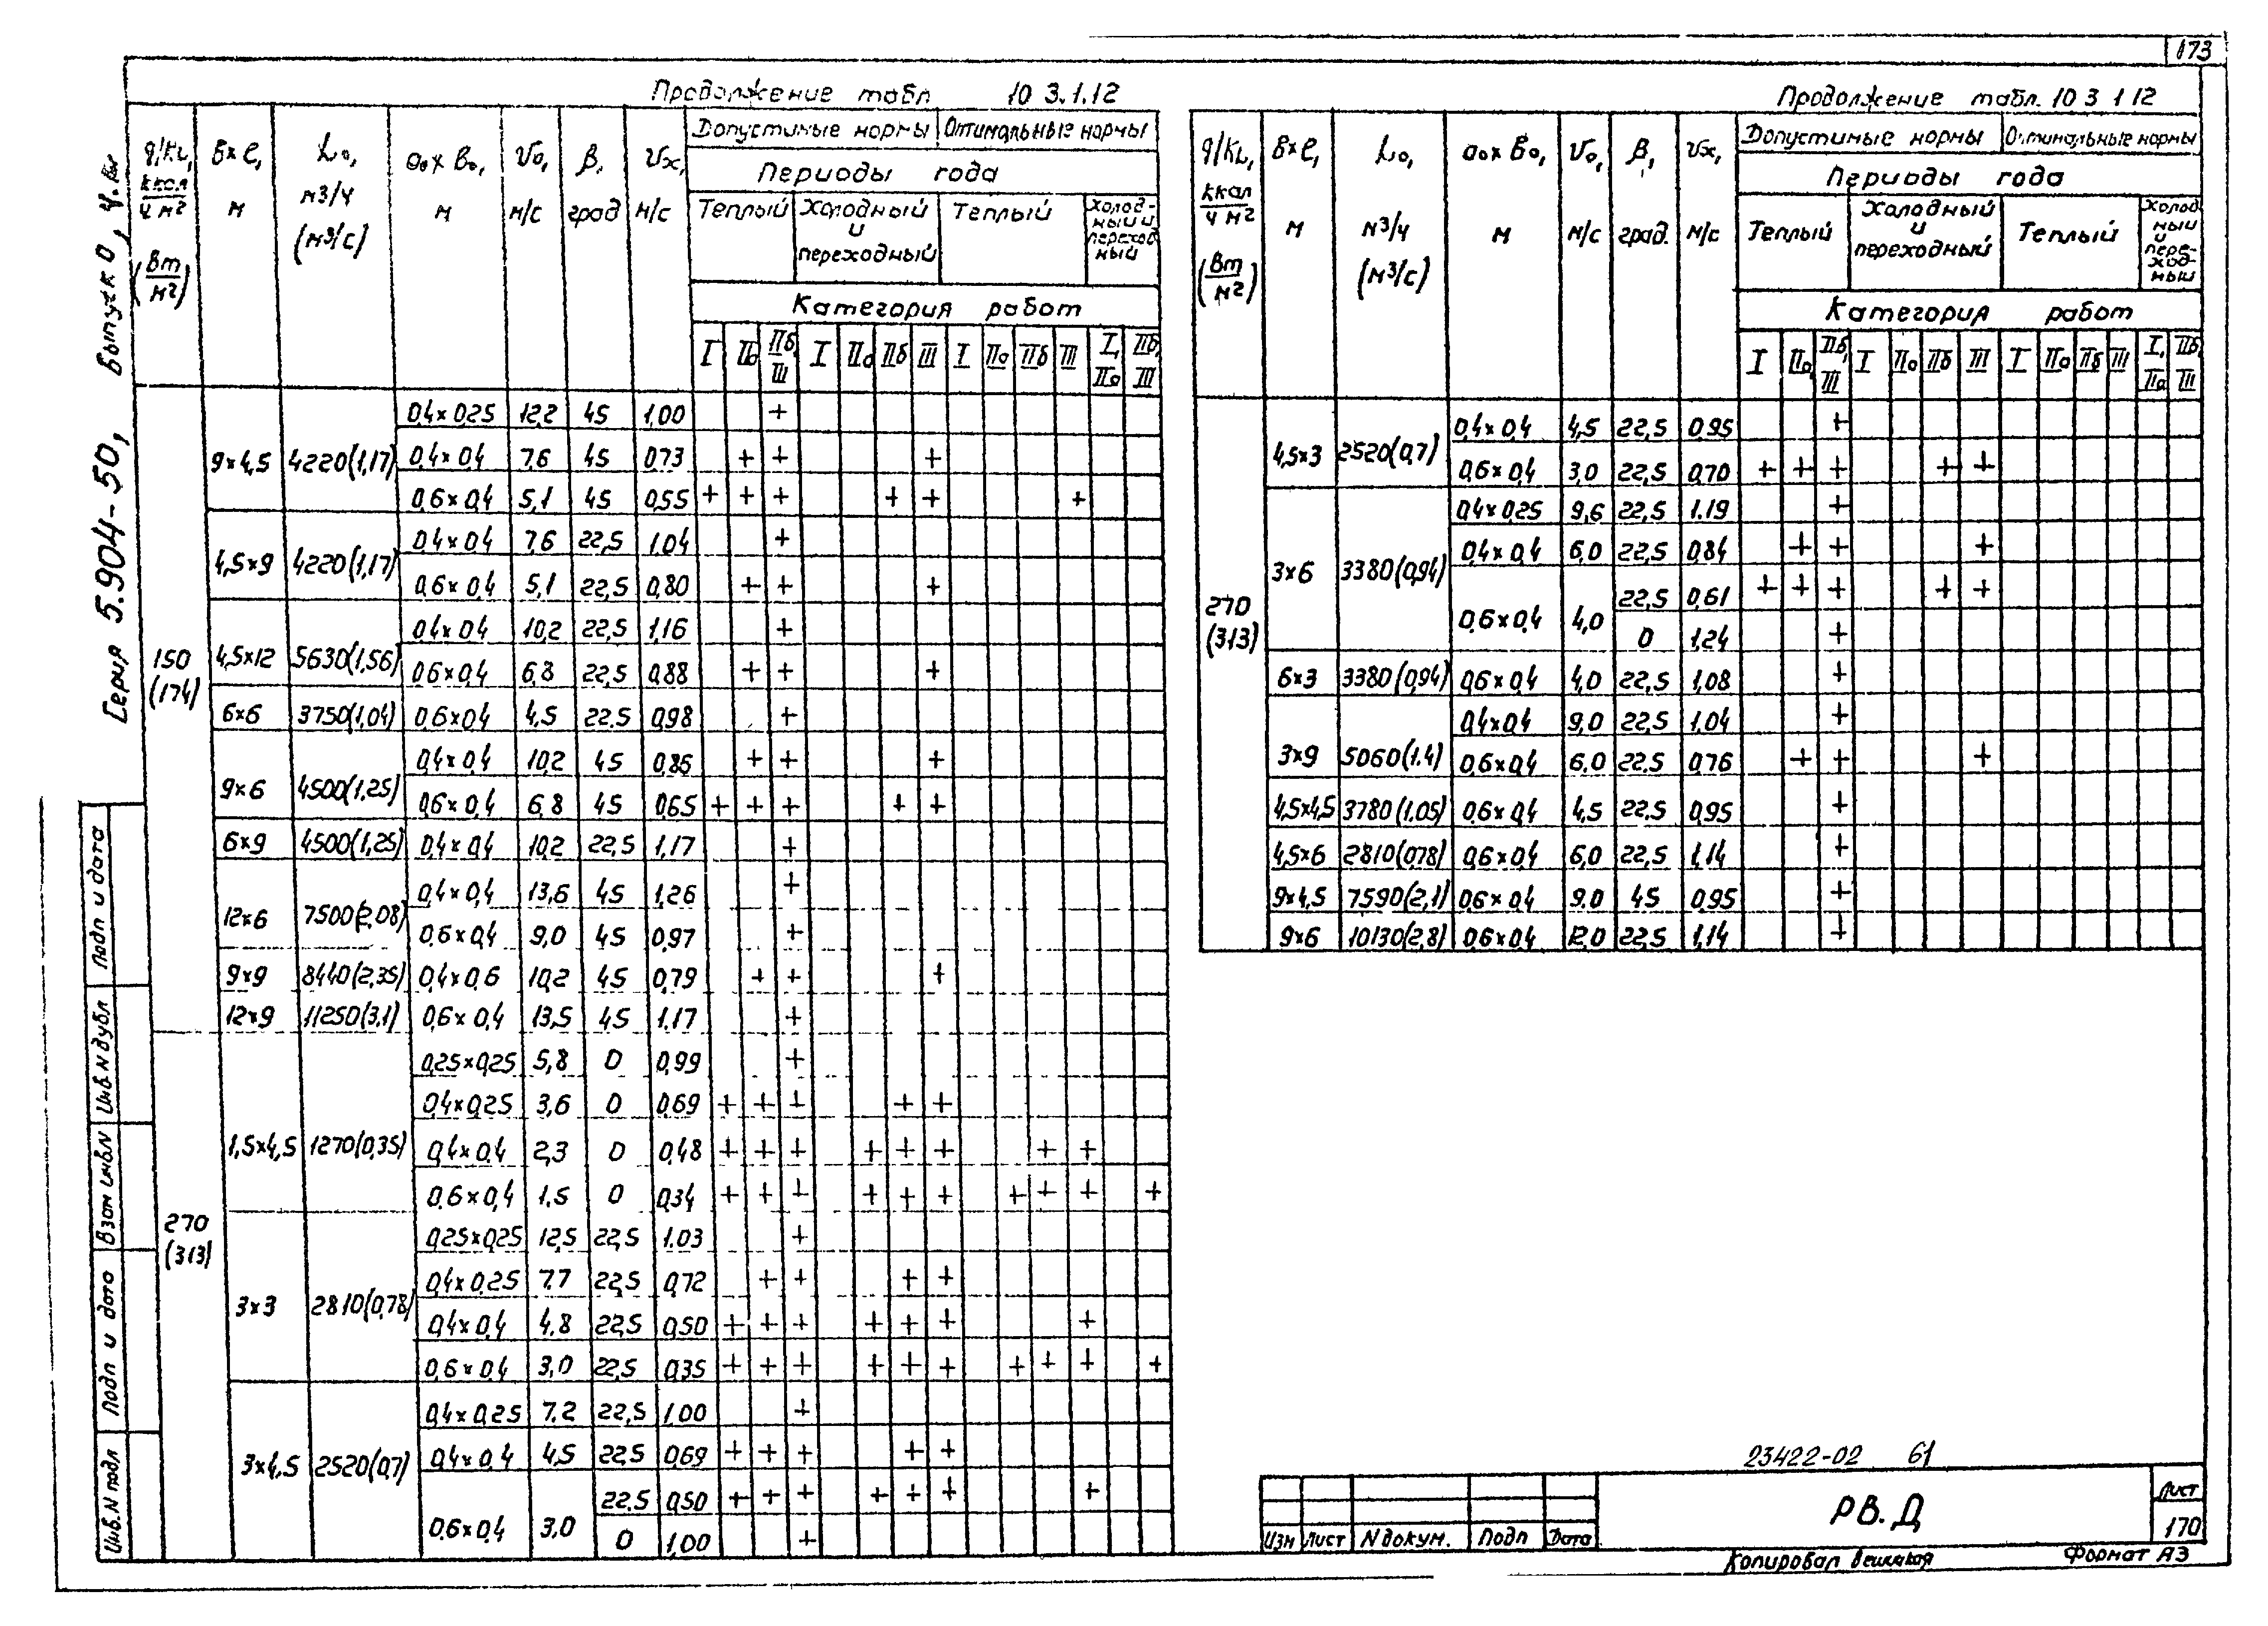 173
Серия 5.904-50, Выпуск 0, ч.
Продолжение табл 10 3.1.12
q/KL, ккал/ч м² (Вт/м²)
в×ℓ, м
L₀, м3/ч (м³/с)
a₀×b₀, м
V₀, м/с
β, град
Vx, м/с
Допустимые нормы Оптимальные нормы
Периоды года
Теплый Холодный и переходный Теплый Холодный и переходный
Категория работ
I IIa IIб, III I IIa IIб III I IIa IIб III I, IIa IIб, III
150 (174)
9×4,5 4220(1,17) 0,4×0,25 12,2 45 1,00 +
0,4×0,4 7,6 45 0,73 + + +
0,6×0,4 5,1 45 0,55 + + + + + +
4,5×9 4220(1,17) 0,4×0,4 7,6 22,5 1,04 +
0,6×0,4 5,1 22,5 0,80 + + +
4,5×12 5630(1,56) 0,4×0,4 10,2 22,5 1,16 +
0,6×0,4 6,8 22,5 0,88 + + +
6×6 3750(1,04) 0,6×0,4 4,5 22.5 0,98 +
9×6 4500(1,25) 0,4×0,4 10,2 45 0,85 + + +
0,6×0,4 6,8 45 0,65 + + + + +
6×9 4500(1,25) 0,4×0,4 10,2 22,5 1,17 +
12×6 7500(2,08) 0,4×0,4 13,6 45 1,26 +
0,6×0,4 9,0 45 0,97 +
9×9 8440(2,35) 0,4×0,6 10,2 45 0,79 + + +
12×9 11250(3,1) 0,6×0,4 13,5 45 1,17 +
270 (313)
1,5×4,5 1270(0,35) 0,25×0,25 5,8 0 0,99 +
0,4×0,25 3,6 0 0,69 + + + + +
0,4×0,4 2,3 0 0,48 + + + + + + + +
0,6×0,4 1,5 0 0,34 + + + + + + + + + +
3×3 2810(0,78) 0,25×0,25 12,5 22,5 1.03 +
0,4×0,25 7.7 22,5 0,72 + + + +
0,4×0,4 4,8 22,5 0,50 + + + + + + +
0,6×0,4 3,0 22,5 0,35 + + + + + + + + + +
3×4,5 2520(0,7) 0,4×0,25 7,2 22,5 1,00 +
0,4×0,4 4,5 22,5 0,69 + + + + +
0,6×0,4 3,0 22,5 0,50 + + + + + + +
0 1,00 +
Продолжение табл. 10 3 1 12
q/KL, ккал/ч м² (Вт/м²)
в×ℓ, м
L₀, м3/ч (м³/с)
a₀×b₀, м
V₀, м/с
β, град.
Vx, м/с
Допустимые нормы Оптимальные нормы
Периоды года
Теплый Холодный и переходный Теплый Холодный и переходный
Категория работ
I IIa IIб, III I IIa IIб III I IIa IIб III I, IIa IIб, III
270 (313)
4,5×3 2520(0,7) 0,4×0,4 4,5 22,5 0,95 +
0,6×0,4 3,0 22,5 0,70 + + + + +
3×6 3380(0,94) 0,4×0,25 9,6 22,5 1.19 +
0,4×0,4 6,0 22,5 0,84 + + +
0,6×0,4 4,0 22,5 0,61 + + + + +
0 1,24 +
6×3 3380(0,94) 0,6×0,4 4,0 22,5 1,08 +
3×9 5060(1.4) 0,4×0,4 9,0 22,5 1,04 +
0,6×0,4 6,0 22.5 0,76 + + +
4,5×4,5 3780(1.05) 0,6×0,4 4,5 22.5 0,95 +
4,5×6 2810(0,78) 0,6×0,4 6,0 22,5 1,14 +
9×4,5 7590(2,1) 0,6×0,4 9,0 45 0,95 +
9×6 10130(2,8) 0,6×0,4 12,0 22,5 1,14 +
Подп и дата
Инв N дубл
Взам инв N
Подп и дата
Инв. N подл
23422-02 61
Изм Лист N докум. Подп Дата
РВ.Д
Лист
170
Копировал
Формат А3